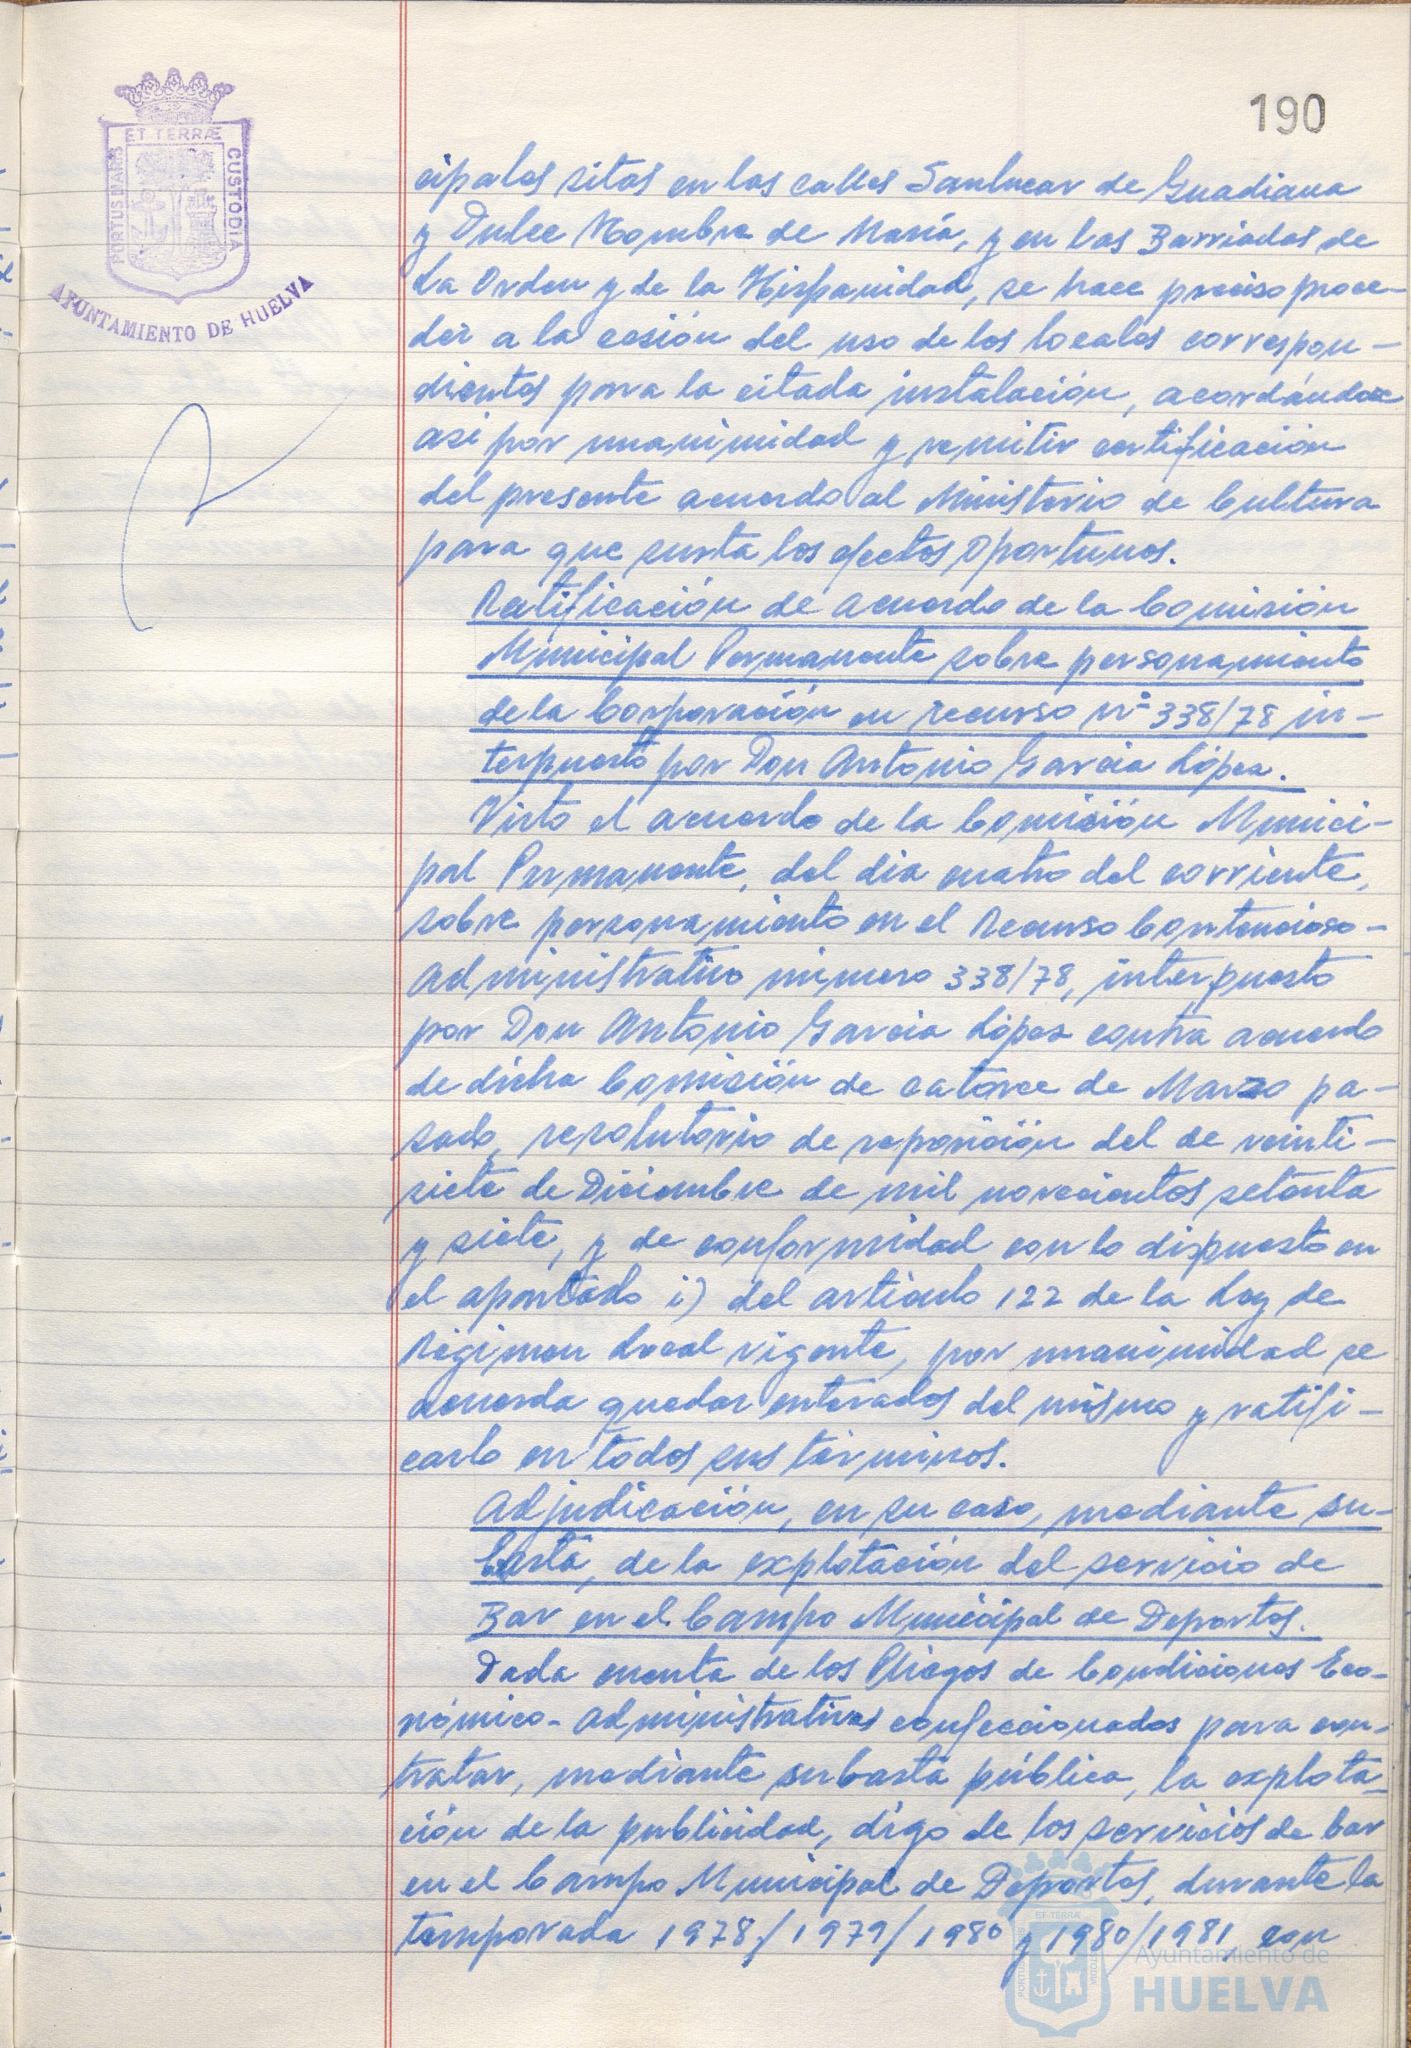 190
ET TERRÆ
PORTUS MARIS
CUSTODIA
AYUNTAMIENTO DE HUELVA
cipales sitas en las calles Sanlucar de Guadiana
y Dulce Nombre de María, y en las Barriadas de
La Orden y de la Hispanidad, se hace preciso proce-
der a la cesión del uso de los locales correspon-
dientes para la citada instalación, acordándose
asi por unanimidad y remitir certificación
del presente acuerdo al Ministerio de Cultura
para que surta los efectos oportunos.
Ratificación de acuerdo de la Comisión
Municipal Permanente sobre personamiento
de la Corporación en recurso nº 338/78 in-
terpuesto por Don Antonio Garcia López.
Visto el acuerdo de la Comisión Munici-
pal Permanente, del dia cuatro del corriente,
sobre personamiento en el Recurso Contencioso-
Administrativo número 338/78, interpuesto
por Don Antonio Garcia López contra acuerdo
de dicha Comisión de catorce de Marzo pa-
sado, resolutorio de reposición del de veinti-
siete de Diciembre de mil novecientos setenta
y siete, y de conformidad con lo dispuesto en
el apartado i) del articulo 122 de la Ley de
Régimen Local vigente, por unanimidad se
acuerda quedar enterados del mismo y ratifi-
carlo en todos sus términos.
Adjudicación, en su caso, mediante su-
basta, de la explotación del servicio de
Bar en el Campo Municipal de Deportes.
Dada cuenta de los Pliegos de Condiciones Eco-
nómico-Administrativas confeccionados para con-
tratar, mediante subasta pública, la explota-
ción de la publicidad, digo de los servicios de bar
en el Campo Municipal de Deportes, durante la
temporada 1978/1979/1980 y 1980/1981, con
ET TERRÆ
PORTUS MARIS
CUSTODIA
Ayuntamiento de
HUELVA